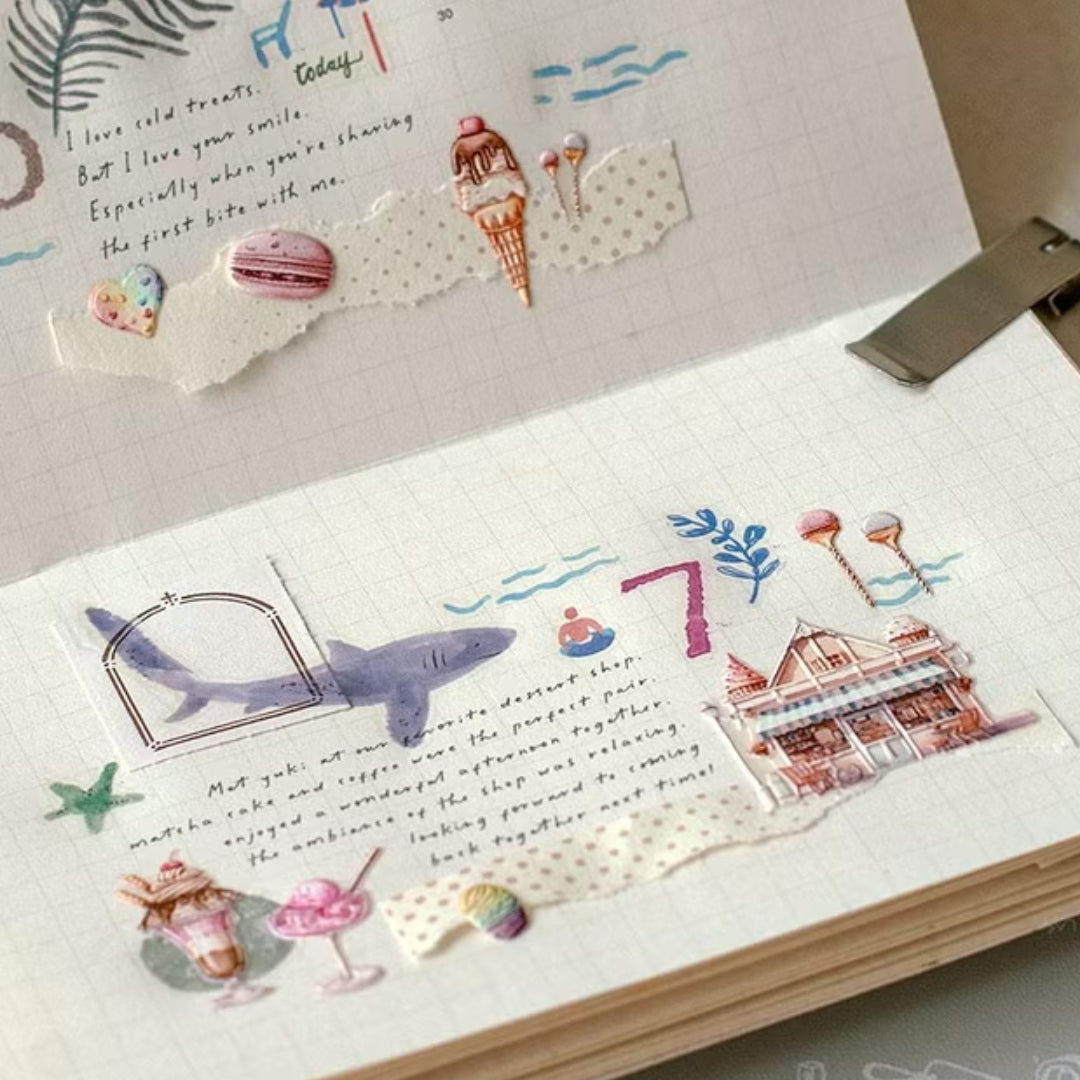 30
today
I love cold treats.
But I love your smile.
Especially when you're sharing
the first bite with me.
7
Met yuki at our favorite dessert shop.
matcha cake and coffee were the perfect pair.
enjoyed a wonderful afternoon together.
the ambiance of the shop was relaxing.
looking forward to coming
back together next time!